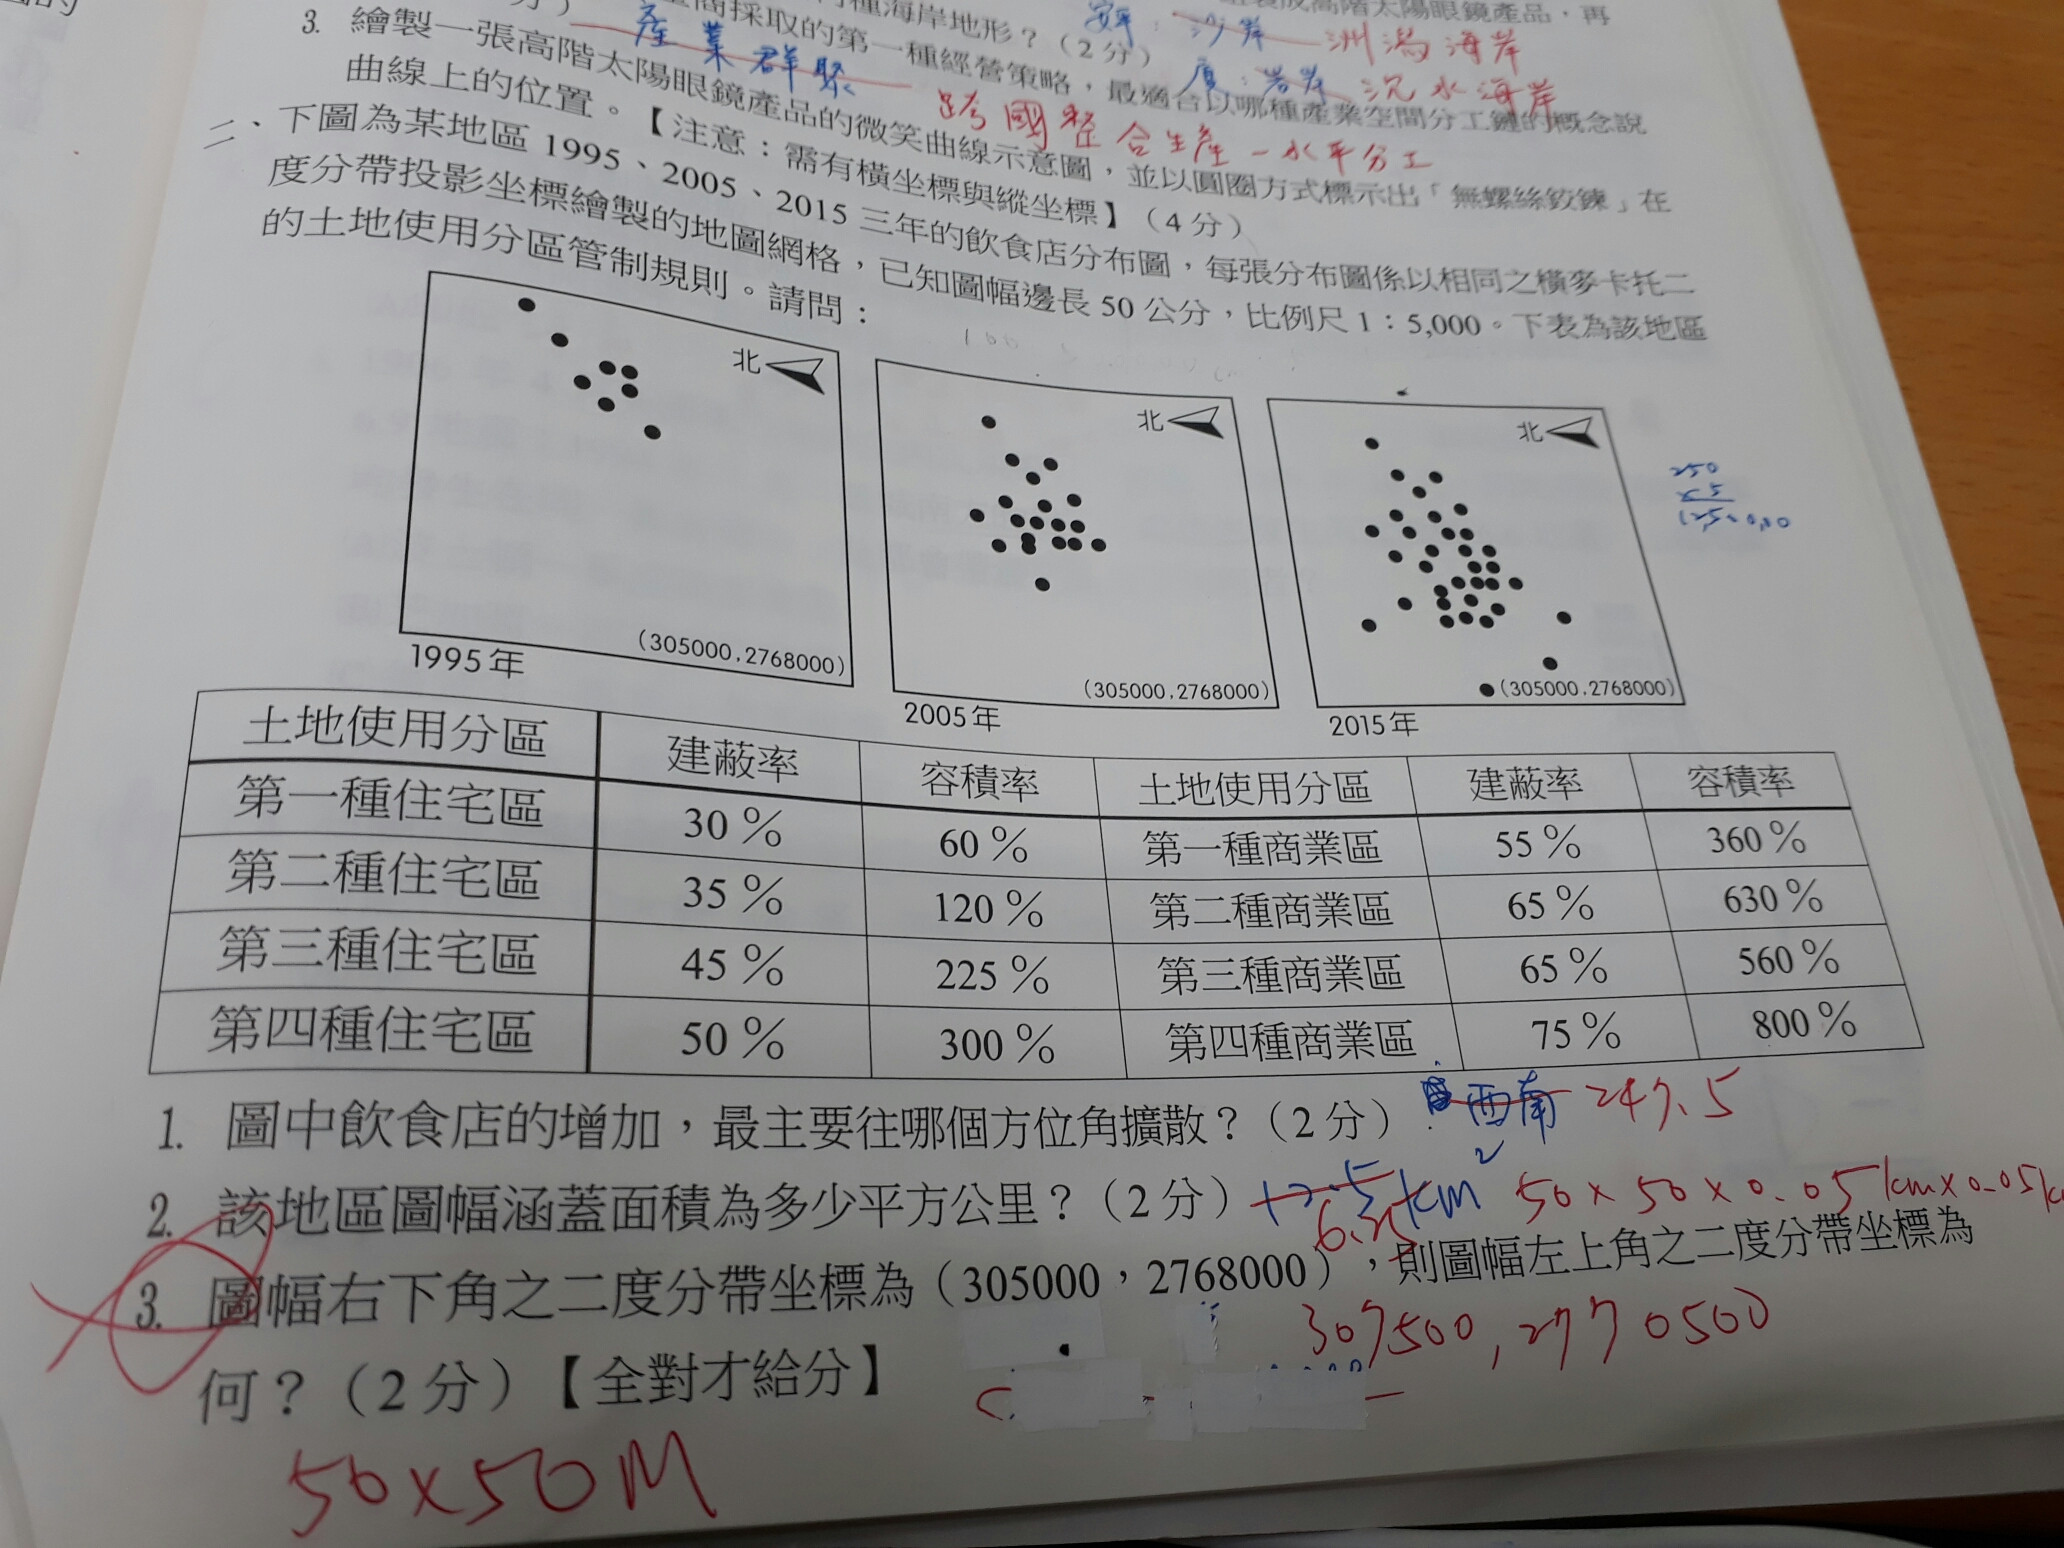 種海岸地形？（2分）
成高階太陽眼鏡產品，再
沙岸 洲潟海岸
商採取的第一種經營策略，最適合以哪種產業空間分工鏈的概念說
產業群聚
岩岸 沉水海岸
跨國整合生產－水平分工
3. 繪製一張高階太陽眼鏡產品的微笑曲線示意圖，並以圓圈方式標示出「無螺絲鉸鍊」在
曲線上的位置。【注意：需有橫坐標與縱坐標】（4分）
二、下圖為某地區 1995、2005、2015 三年的飲食店分布圖，每張分布圖係以相同之橫麥卡托二
度分帶投影坐標繪製的地圖網格，已知圖幅邊長 50 公分，比例尺 1：5,000。下表為該地區
的土地使用分區管制規則。請問：
北
(305000,2768000)
1995年
北
(305000,2768000)
2005年
北
(305000,2768000)
2015年
250
x 5
土地使用分區 建蔽率 容積率 土地使用分區 建蔽率 容積率
第一種住宅區 30% 60% 第一種商業區 55% 360%
第二種住宅區 35% 120% 第二種商業區 65% 630%
第三種住宅區 45% 225% 第三種商業區 65% 560%
第四種住宅區 50% 300% 第四種商業區 75% 800%
1. 圖中飲食店的增加，最主要往哪個方位角擴散？（2分） 西南 247.5
2. 該地區圖幅涵蓋面積為多少平方公里？（2分） 12.5 km² 50×50×0.05km×0.05k
6.25
3. 圖幅右下角之二度分帶坐標為（305000，2768000），則圖幅左上角之二度分帶坐標為
307500, 2770500
何？（2分）【全對才給分】
50×50M